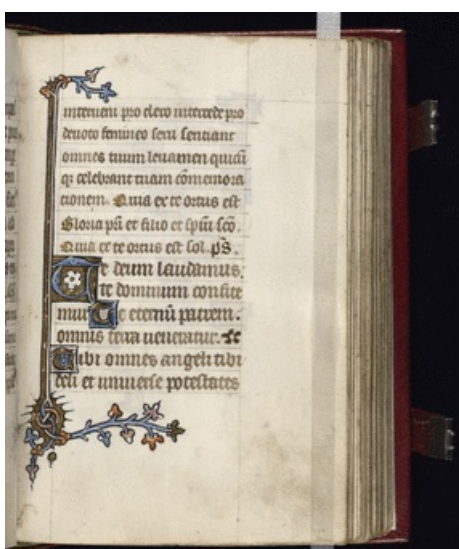 interueni pro clero intercede pro
deuoto femineo sexu sentiant
omnes tuum leuamen quicū
qȝ celebrant tuam cōmemora
cionem. Quia ex te ortus est
Gloria pr̄i et filio et sp̄ui sc̄o.
Quia ex te ortus est sol. p̄s.
Te deum laudamus:
te dominum confite
mur Te eternū patrem:
omnis terra ueneratur.
Tibi omnes angeli tibi
celi et uniuerse potestates